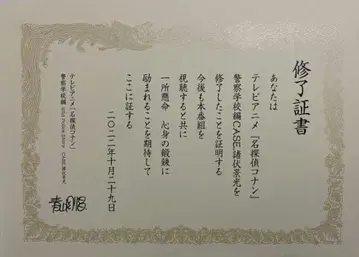 修了証書
あなたは
テレビアニメ『名探偵コナン』
警察学校編CASE.諸伏景光を
修了したことを証明する
今後も本番組を
視聴すると共に
一所懸命 心身の鍛錬に
励まれることを期待して
ここに証する
二〇二二年十月二十九日
テレビアニメ『名探偵コナン』
警察学校編 Wild Police Story CASE.諸伏景光
青山剛昌